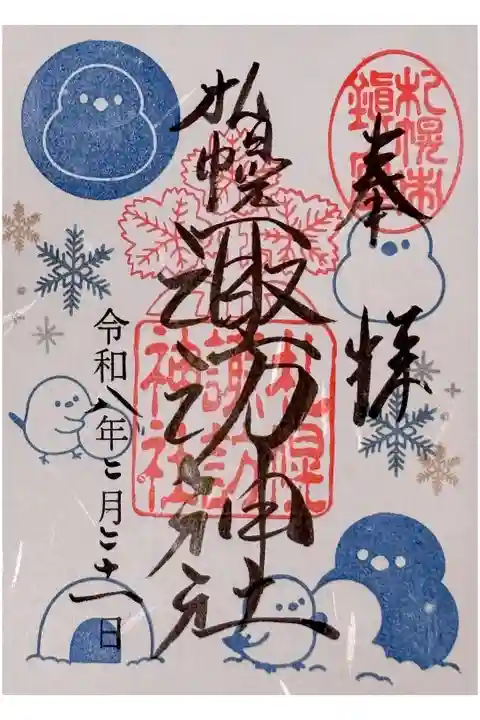 奉拝
札幌村
鎮守
札幌諏訪神社
札幌
諏訪
神社
令和八年二月二十一日